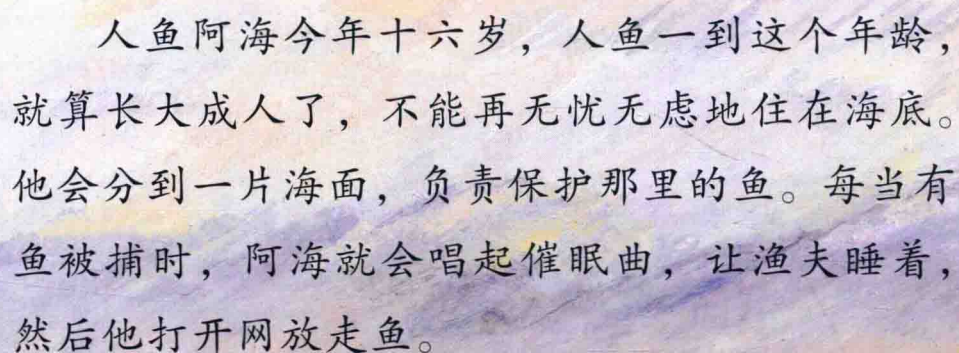 人鱼阿海今年十六岁，人鱼一到这个年龄，
就算长大成人了，不能再无忧无虑地住在海底。
他会分到一片海面，负责保护那里的鱼。每当有
鱼被捕时，阿海就会唱起催眠曲，让渔夫睡着，
然后他打开网放走鱼。